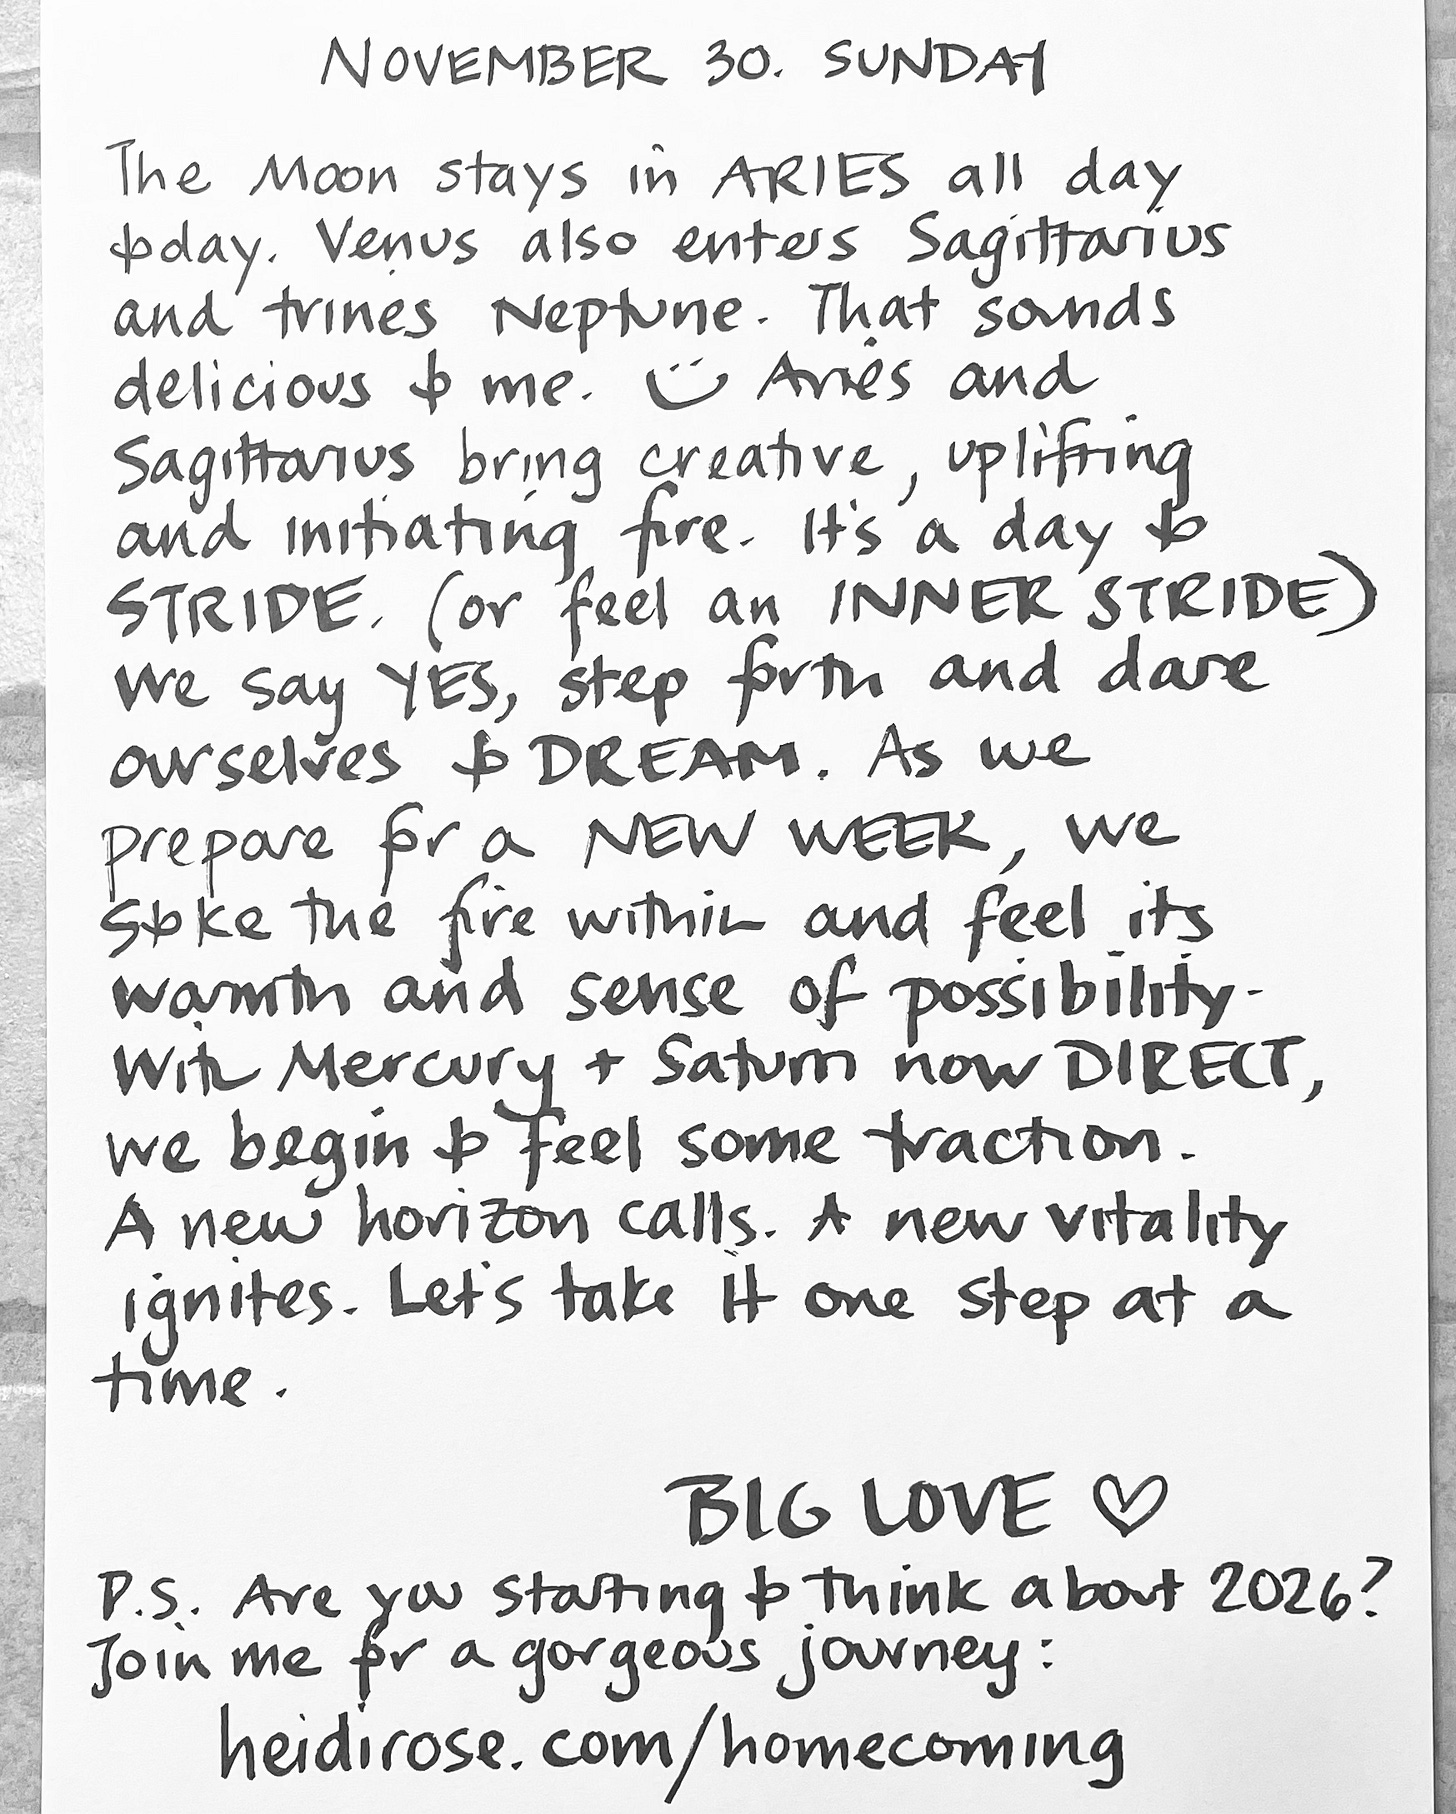 NOVEMBER 30. SUNDAY
The Moon stays in ARIES all day
today. Venus also enters Sagittarius
and trines Neptune. That sounds
delicious to me. Aries and
Sagittarius bring creative, uplifting
and initiating fire. It's a day to
STRIDE. (or feel an INNER STRIDE)
We say YES, step forth and dare
ourselves to DREAM. As we
prepare for a NEW WEEK, we
stoke the fire within and feel its
warmth and sense of possibility.
With Mercury + Saturn now DIRECT,
we begin to feel some traction.
A new horizon calls. A new vitality
ignites. Let's take it one step at a
time.
BIG LOVE ♡
P.S. Are you starting to think about 2026?
Join me for a gorgeous journey:
heidirose.com/homecoming